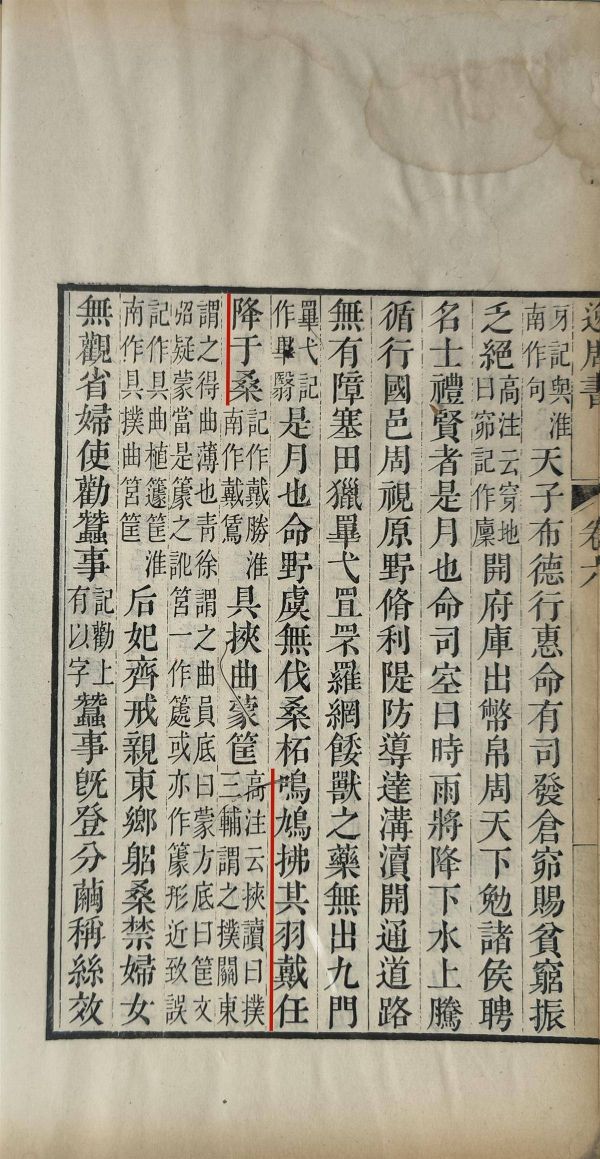 逸周書 卷六
牙記與淮南作句天子布德行惠命有司發倉窌賜貧窮振
乏絕高注云穿地曰窌記作廩開府庫出幣帛周天下勉諸侯聘
名士禮賢者是月也命司空曰時雨將降下水上騰
循行國邑周視原野脩利隄防導達溝瀆開通道路
無有障塞田獵罼弋罝罘羅網餧獸之藥無出九門
罼弋記作畢翳是月也命野虞無伐桑柘鳴鳩拂其羽戴任
降于桑記作戴勝淮南作戴鵀具挾曲蒙筐高注云挾讀曰撲三輔謂之撲關東
謂之得曲薄也青徐謂之曲員底曰蒙方底曰筐文
弨疑蒙當是篆之訛筥一作籧或亦作篆形近致誤
記作具曲植籧筐淮南作具撲曲筥筐后妃齊戒親東鄉躳桑禁婦女
無觀省婦使勸蠶事記勸上有以字蠶事既登分繭稱絲效